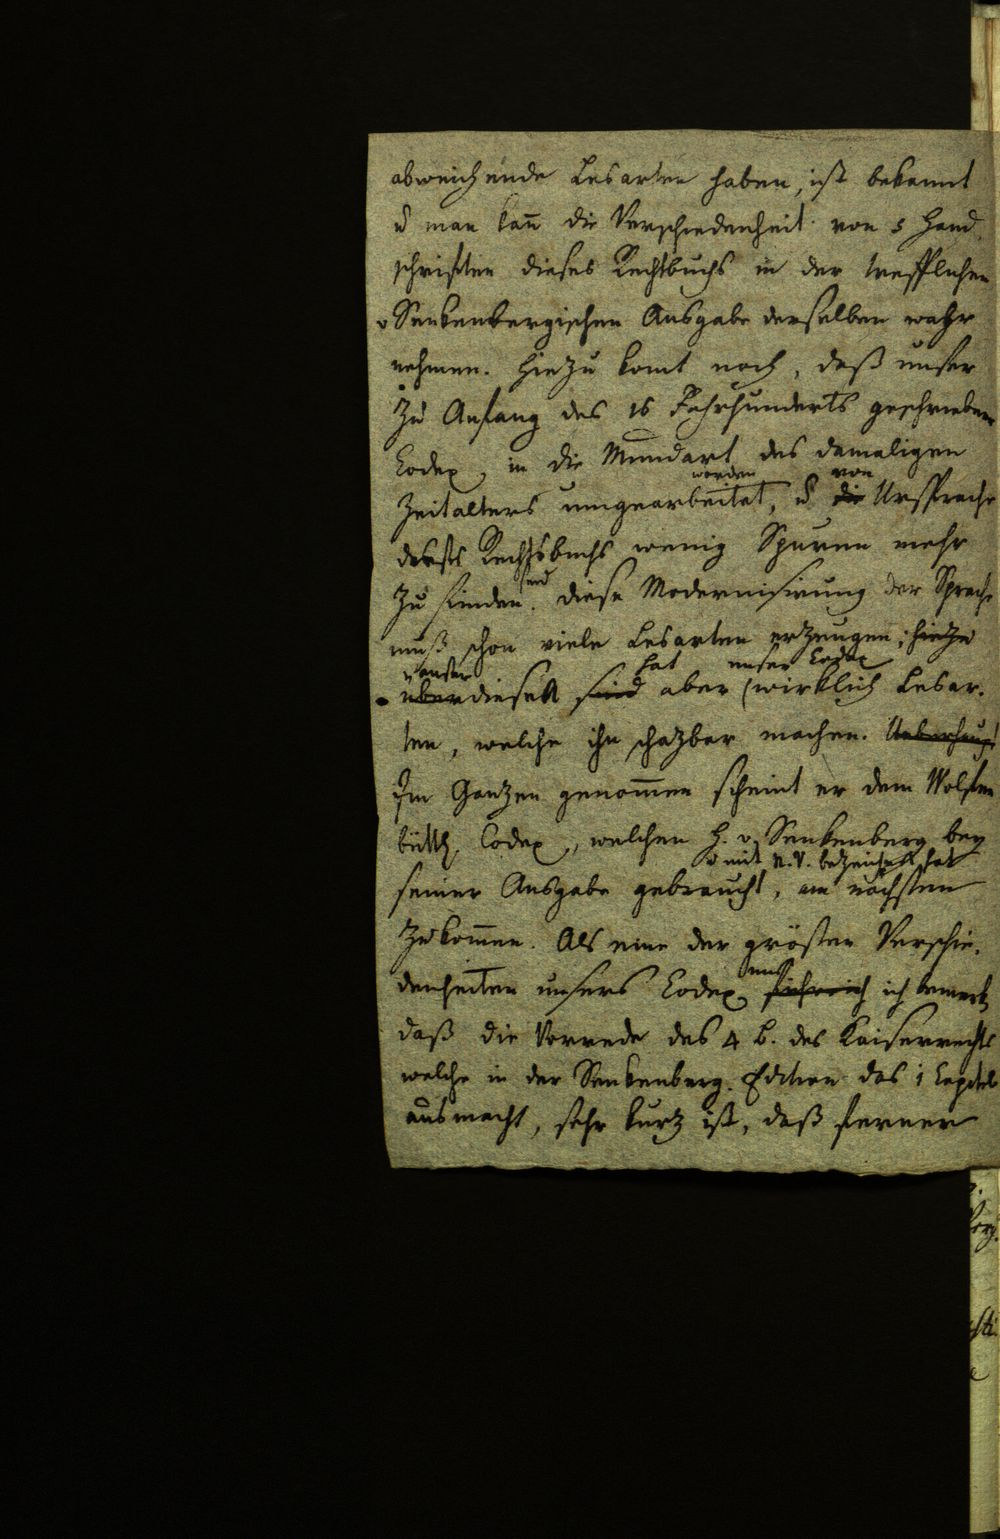 abweichende Lesarten haben, ist bekannt
u man kan̄ die Verschiedenheit von 5 Hand
schriften dieses Rechtbuchs in der trefflichen
v Senkenbergischen Ausgabe derselben wahr
nehmen. Hiezu komt noch, daß unser
zu Anfang des 15 Jahrhunderts geschriebene
Codex, in die Mundart des damaligen
worden von
Zeitalters umgearbeitet, u die Ursprache
Rechtsbuchs wenig Spuren mehr
sind
zu finden. Diese Modernisirung der Sprache
muß schon viele Lesarten erzeugen; hiezu
ausser hat unser Codex
überdiesen sind aber wirklich Lesar-
ten, welche ihn schazbar machen. Ueberhaupt
Im Ganzen genom̄en scheint er dem Wolfen
büttl. Codex, welchen H. v. Senkenberg bey
u mit bezeichnet hat
seiner Ausgabe gebraucht, am nächsten
zu kom̄en. Als eine der grösten Verschie-
muß
denheiten unsers Codex ich bemerken
daß die Vorrede des 4 B. des Kaiserrechts
welche in der Senkenberg. Edition das 1 Capitel
ausmacht, sehr kurz ist, daß ferner